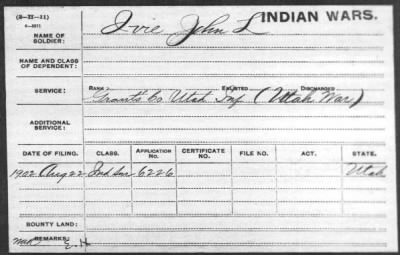 (3-II-11)
INDIAN WARS.
NAME OF SOLDIER: Ivie John L
NAME AND CLASS OF DEPENDENT:
SERVICE: RANK ENLISTED DISCHARGED
Grant's Co Utah Inf (Utah War)
ADDITIONAL SERVICE:
DATE OF FILING. CLASS. APPLICATION No. CERTIFICATE No. FILE No. ACT. STATE.
1902 Aug 22 Ind Sur 6226 Utah
BOUNTY LAND:
REMARKS:
E.H